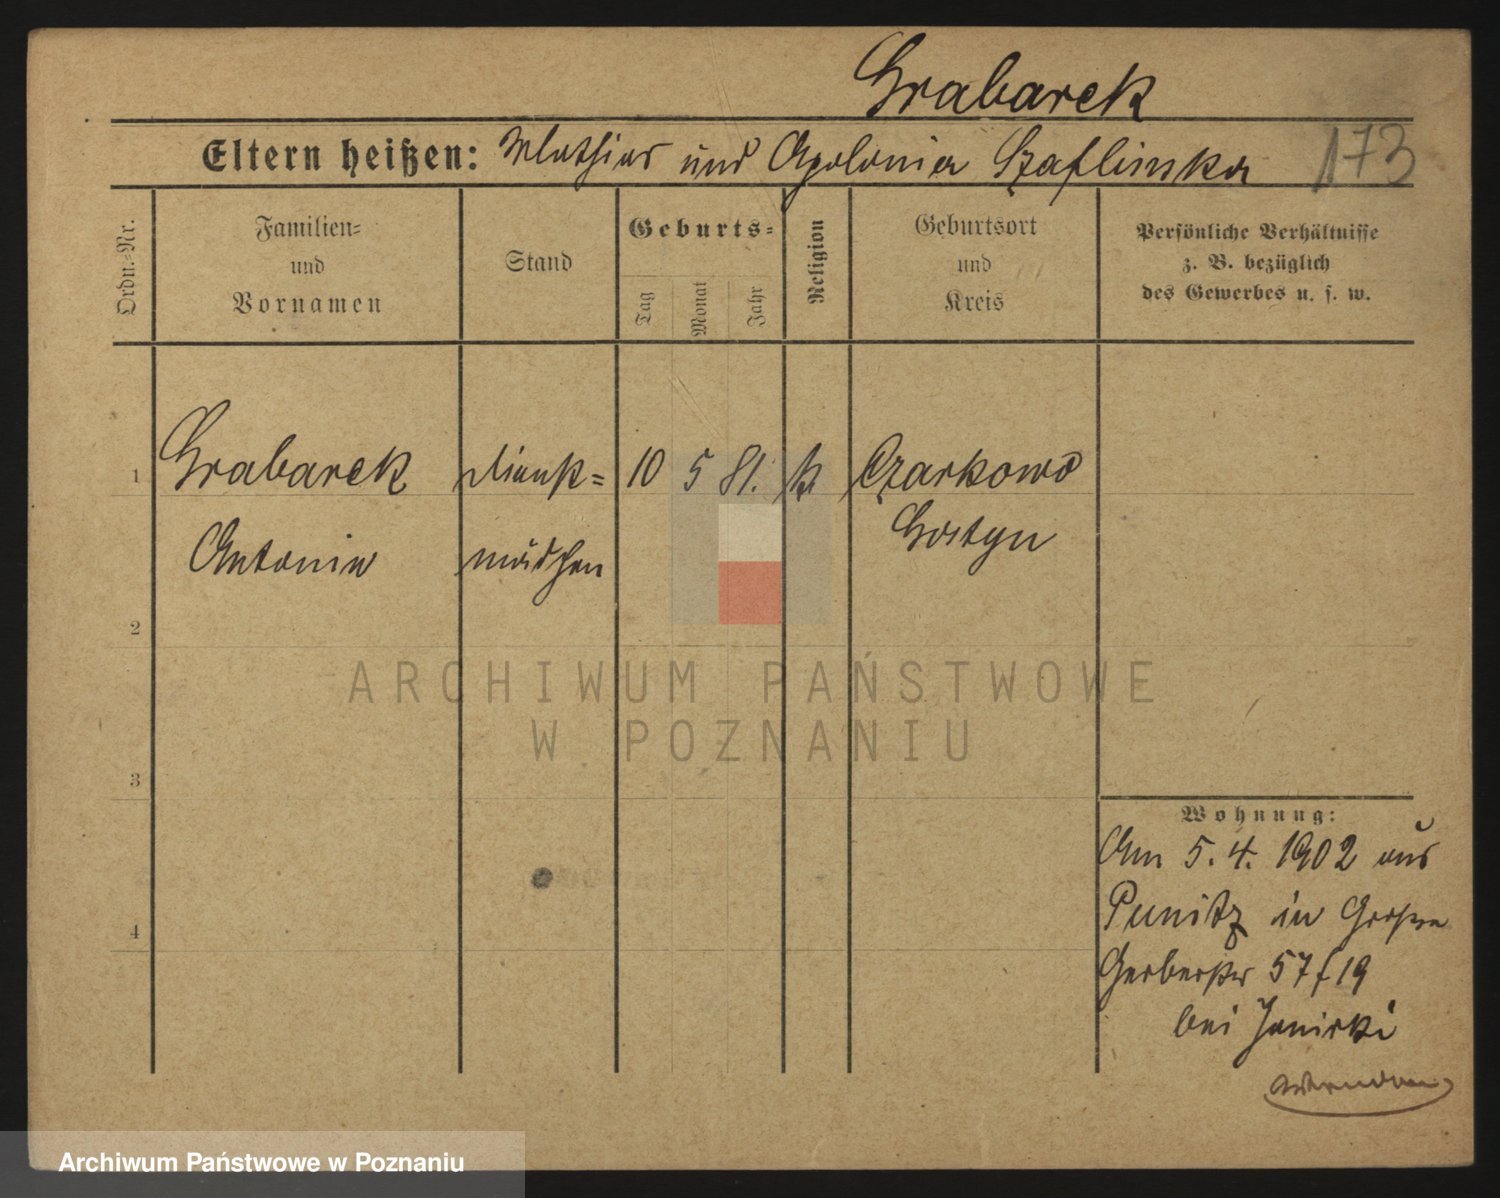 Grabarek
Eltern heißen: Mathias und Apolonia Szaflinska 173
Ordn.-Nr.
Familien-
und
Vornamen
Stand
Geburts-
Tag
Monat
Jahr
Religion
Geburtsort
und
Kreis
Persönliche Verhältnisse
z. B. bezüglich
des Gewerbes u. s. w.
1 Grabarek Dienst= 10 5 81. k Czarkowo
Gostyn
Antonie mädchen
2
ARCHIWUM PAŃSTWOWE
W POZNANIU
3
Wohnung:
Am 5. 4. 1902 aus
Punitz in Große
4
Gerberstr 57 f 19
bei
Archiwum Państwowe w Poznaniu